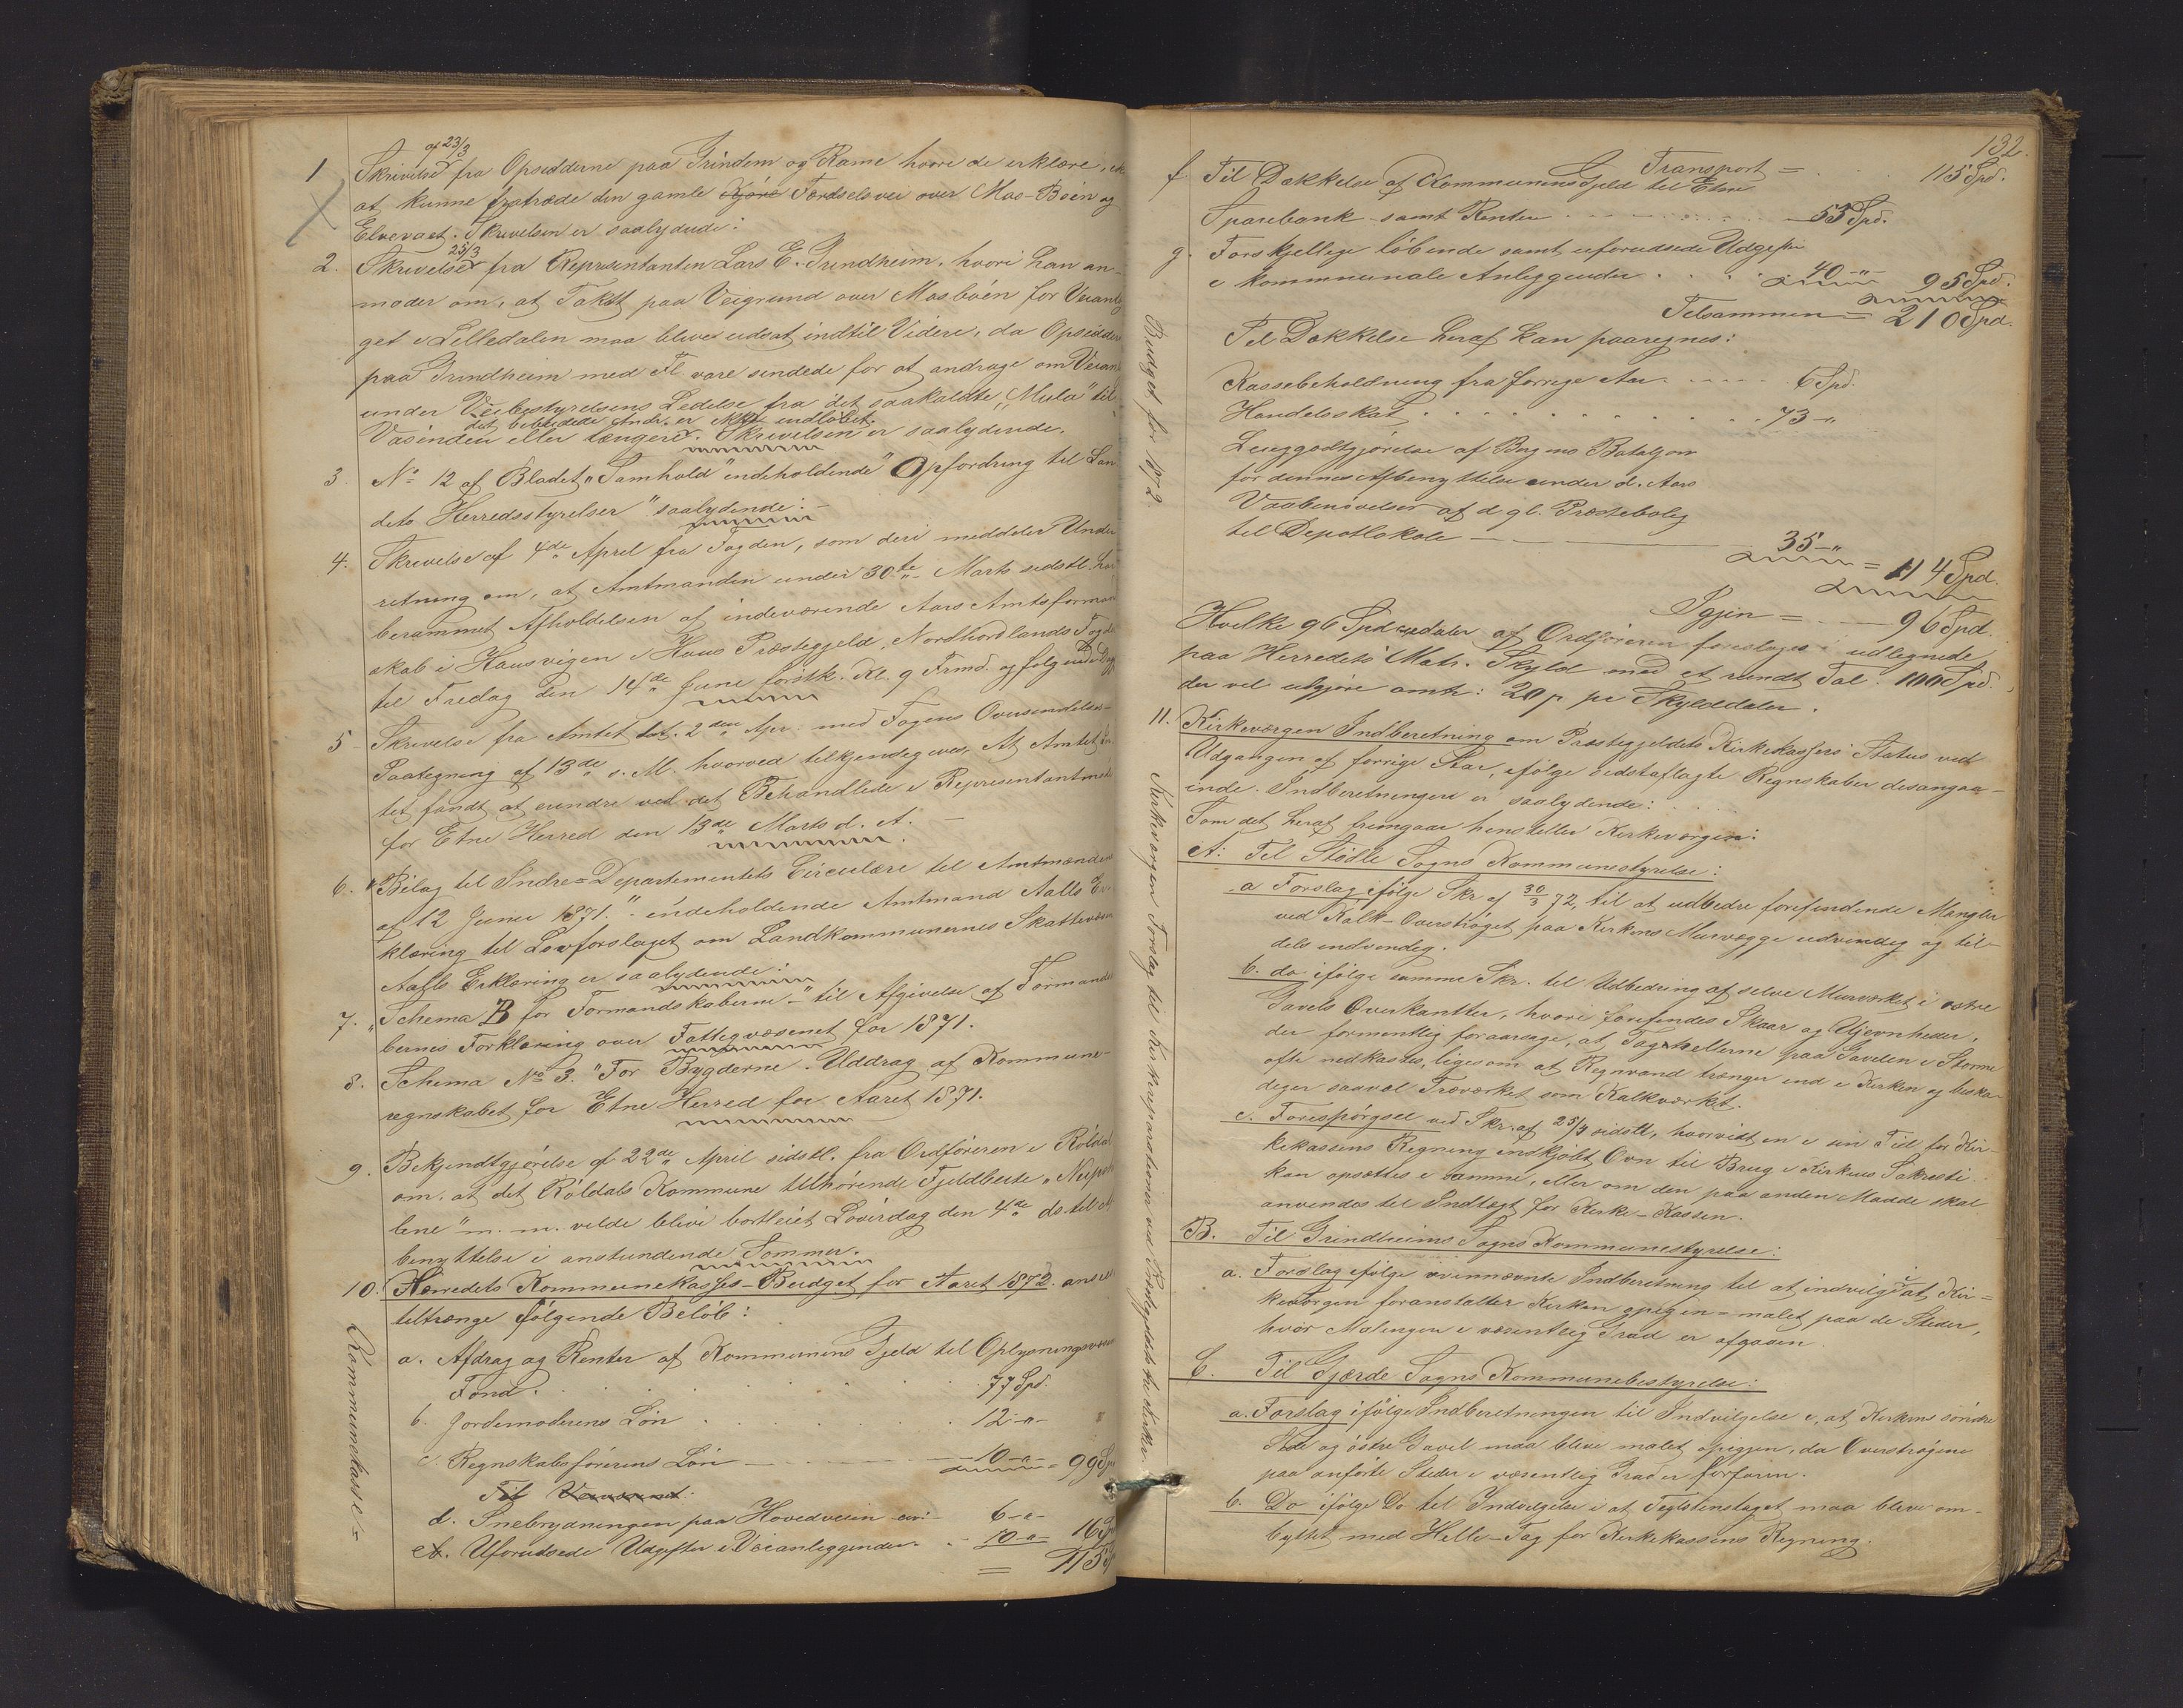 af 23/3
1 Skrivelse fra Opsidderne paa Grindem og Rame hvori de erklære, ei
at kunne fratræde den gamle Kjøre Færdselsvei over Mos-Böen og
Elvevaet. Skrivelsen er saalydende:
25/3
2. Skrivelse fra Representanten Lars E. Grindheim, hvori han an-
moder om, at Takst paa Veigrund over Mosböen for Veianlæ
get i Lilledalen maa blive udsat indtil Videre, da Opsidder
paa Grindheim med Fl. vare sindede for at andrage om Veianl
under Veibestyrelsens Ledelse fra det saakaldte "Mula" til
det bebudede Andr. er ikke indløbet.
Vasenden eller længere. Skrivelsen er saalydende.
3 No 12 af Bladet "Samhold" indeholdende "Opfordring til Lan
dets Herredsstyrelser" saalydende: -
4. Skrivelse af 4de April fra Fogden, som deri meddeler Under
retning om, at Amtmanden under 30te Marts sidstl. har
berammet Afholdelsen af indeværende Aars Amtsforman
skab i Hausvigen i Haus Præstegjeld, Nordhordlands Fogd
til Fredag den 14de Juni førstk. Kl. 9 Frmd. og følgende Dag
5 Skrivelse fra Amtet dat. 2den Apr. med Fogens Oversendelses-
Paategning af 13de s. M. hvorved tilkjendegives, At Amtet In
tet fandt at erindre ved det Behandlede i Representantmöde
for Etne Herred den 13de Marts d. A. -
6. "Bilag til Indre-Departementets Circulære til Amtmændene
af 12 Juni 1871." indeholdende Amtmand Aalls Er
klæring til Lovforslaget om Landkommunernes Skattevæsen
Aalls Erklæring er saalydende:
7. "Schema B for Formandskaberne -" til Afgivelse af Formands
bernes Forklaring over Fattigvæsenet for 1871.
8. Schema No 3. "For Bygderne. Uddrag af Kommune-
regnskabet for Etne Herred for Aaret 1871.
9. Bekjendtgjørelse af 22de April sidstl. fra Ordføreren i Röldal
om, at det Röldals Kommune tilhörende Fjeldbeite "
lene" m. m. vilde blive bortleiet Löverdag den 4de ds. til A
benyttelse i anstundende Sommer.
10. Herredets Kommunekasses-Budget for Aaret 1872. ansees
tiltrænge følgende Beløb:
Kommunekasse-
a. Afdrag og Renter af Kommunens Gjeld til Oplysningsvæs
Fond . . . 77 Spd.
b. Jordemoderens Lön . . . 12 -"-
c. Regnskabsførerens Lön — 10 -"- = 99 Sp
Til Veivæsenet:
d. Snebrydningen paa Hovedveien 6 -"-
e. Uforudsede Udgifter i Veianliggender . . 10 -"- 16 Sp
= 115 Sp
132.
Transport = . . . 115 Spd.
f Til Dækkelse af Kommunens Gjeld til Etne
Sparebank samt Renter . . . 55 Spd.
g. Forskjellige løbende samt uforudsede Udgifter
i kommunale Anliggender . . . 40 -"- 95 Spd.
Tilsammen = 210 Spd.
Budget for 1872
Til Dækkelse heraf kan paaregnes:
Kassebeholdning fra forrige Aar . . . 6 Spd.
Handelsskat . . . 73 -"
Leiegodtgjörelse af Bergens Bataljon
for dennes Afbenyttelse under d. Aars
Vaabenövelser af d gl. Præstebolig
til Depotlokale — 35 -"- = 114 Spd.
Igjen = — 96 Spd.
Hvilke 96 Speciedaler af Ordføreren foreslages udlignede
paa Herredets Matr. Skyld med et rundt Tal: 100 Spd.
der vil udgjøre omtr: 20 p pr Skylddaler.
Kirkeværgen Forslag til Kirkereparationer ved Præstegjeldets tre Kirker.
11. Kirkeværgen Indberetning om Præstegjeldets Kirkekassers Status ved
Udgangen af forrige Aar, ifølge sidstaflagte Regnskaber desangaa-
ende. Indberetningen er saalydende:
Som det heraf fremgaar henstiller Kirkeværgen:
A: Til Stödle Sogns Kommunestyrelse:
a Forslag ifølge Skr af 30/3 72, til at udbedre forefindende Mangler
ved Kalk-Overströget paa Kirkens Murvægge udvendig og til-
dels indvendig.
b. do ifølge samme Skr. til Udbedring af selve Murværket i østre
Gavels Overkantter, hvori forefindes Skaar og Ujevnheder,
der formentlig foraarsage, at Taghellerne paa Gavelen i Storme
ofte nedkastes, ligesom at Regnvand trænger ind i Kirken og beska-
diger saavel Træværket som Kalkværket.
c. Forespörgsel ved Skr. af 25/4 sidstl., hvorvidt en i sin Tid for Kir-
kekassens Regning inskjöbt Ovn til Brug i Kirkens Sakresti
kan opsættes i samme, eller om den paa anden Maade skal
anvendes til Indtægt for Kirke-Kassen.
B. Til Grindheims Sogns Kommunestyrelse:
a. Forslag ifølge ovennævnte Indberetning til at indvilge i at Kir-
keværgen foranstalter Kirken opigjen-malet paa de Steder,
hvor Malingen i væsentlig Grad er afgaaen.
C. Til Gjerde Sogns Kommunebestyrelse:
a. Forslag ifølge Indberetningen til Indvilgelse i, at Kirkens söndre
Side og östre Gavel maa blive malet opigjen, da Overströgene
paa anførte Steder i væsentlig Grad er forfaren.
b. Do ifølge Do til Indvilgelse i at Teglstenstaget maa blive om-
byttet med Helle-Tag for Kirkekassens Regning.